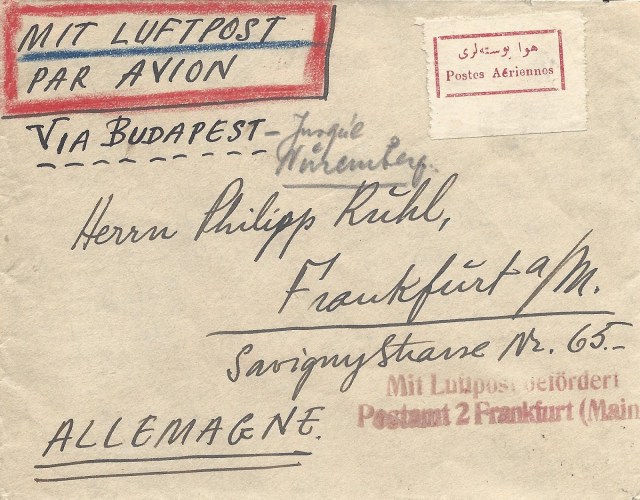 MIT LUFTPOST
PAR AVION
هوا پوسته‌لری
Postes Aériennes
VIA BUDAPEST - Jusqu'e
Nüremberg.
Herrn Philipp Rühl,
Frankfurt a/M.
Savignystrasse Nr. 65.-
Mit Luftpost befördert
Postamt 2 Frankfurt (Main
ALLEMAGNE.